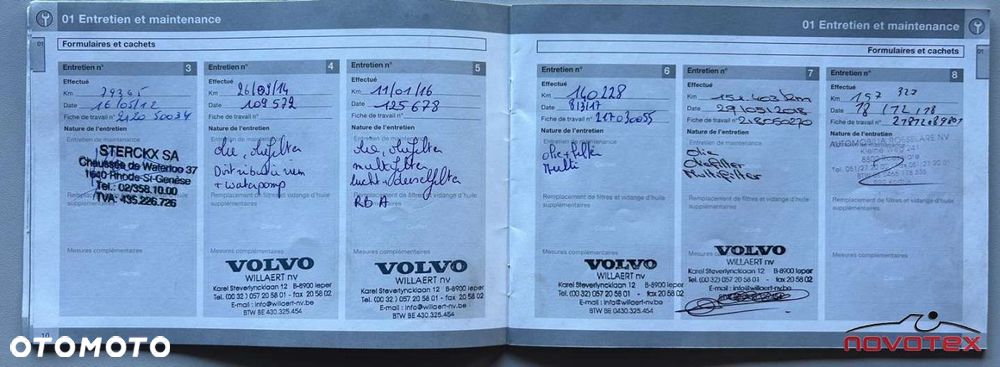 01 Entretien et maintenance
01
Formulaires et cachets
Entretien n° 3
Effectué
Km 79365
Date 16/05/12
Fiche de travail n° 2120 50034
Nature de l'entretien
STERCKX SA
Chaussée de Waterloo 37
1640 Rhode-St-Genèse
Tel.: 02/358.10.00
TVA: 435.226.726
Mesures complémentaires
10
Entretien n° 4
Effectué
Km 26/03/14
Date 109 572
Fiche de travail n°
Nature de l'entretien
olie, oliefilter
Distributieriem
+ waterpomp
Remplacement de filtres et vidange d'huile
supplémentaires
Mesures complémentaires
VOLVO
WILLAERT nv
Karel Steverlyncklaan 12 B-8900 Ieper
Tel. (00 32) 057 20 58 01 - fax 20 58 02
E-mail : info@willaert-nv.be
BTW BE 430.325.454
Entretien n° 5
Effectué
Km 11/01/16
Date 125 678
Fiche de travail n°
Nature de l'entretien
olie, oliefilter
multifilter
lucht + dieselfilter
RBA
Mesures complémentaires
VOLVO
WILLAERT nv
Karel Steverlyncklaan 12 B-8900 Ieper
Tel. (00 32) 057 20 58 01 - fax 20 58 02
E-mail : info@willaert-nv.be
BTW BE 430.325.454
01 Entretien et maintenance
01
Formulaires et cachets
Entretien n° 6
Effectué
Km 140 228
Date 8/3/17
Fiche de travail n° 217030055
Nature de l'entretien
olie + filter
Multi
Remplacement de filtres et vidange d'huile
supplémentaires
Mesures complémentaires
VOLVO
WILLAERT nv
Karel Steverlyncklaan 12 B-8900 Ieper
Tel. (00 32) 057 20 58 01 - fax 20 58 02
E-mail : info@willaert-nv.be
BTW BE 0430.325.454
Entretien n° 7
Effectué
Km 154 403 km
Date 29/05/2018
Fiche de travail n° 218050270
Nature de l'entretien
olie
oliefilter
Multifilter
Remplacement de filtres et vidange d'huile
supplémentaires
Mesures complémentaires
VOLVO
WILLAERT nv
Karel Steverlyncklaan 12 B-8900 Ieper
Tel. (00 32) 057 20 58 01 - fax 20 58 02
E-mail : info@willaert-nv.be
Entretien n° 8
Effectué
Km 157 327
Date
Fiche de travail n°
Nature de l'entretien
AUTOMOBILIA ROESELARE NV
Remplacement de filtres et vidange d'huile
supplémentaires
Mesures complémentaires
OTOMOTO
NOVOTEX